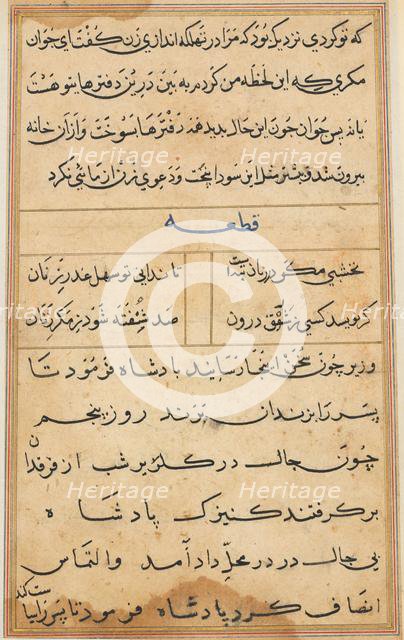 که تو کردی نزدیک بود که مرا در تهلکه اندازی زن گفت ای جوان
مکری که این لحظه من کردم به بین در این دفترها بتو هست
یا نه پس جوان چون این حال بدید همه دفترها بسوخت و از آن خانه
بیرون شد و بیش مثل این سودا نپخت و دعوی زن از مانی نکرد
قطعه
نخشبی مکر در زنان
تا ندانی تو سهل غدر زنان
گر نویسد کسی ز شق درون
صد سفینه شود ز مکر زنان
وزیر چون سخن اینجا رسانید پادشاه فرمود تا
پسر را بزندان بردند روز پنجم
چون جالب در کله بر شب از فرقدان
برگرفتند کنیزک پادشاه
بی جالب در در محل داد آمد و التماس
انصاف کرد پادشاه فرمود تا پسر را
Heritage